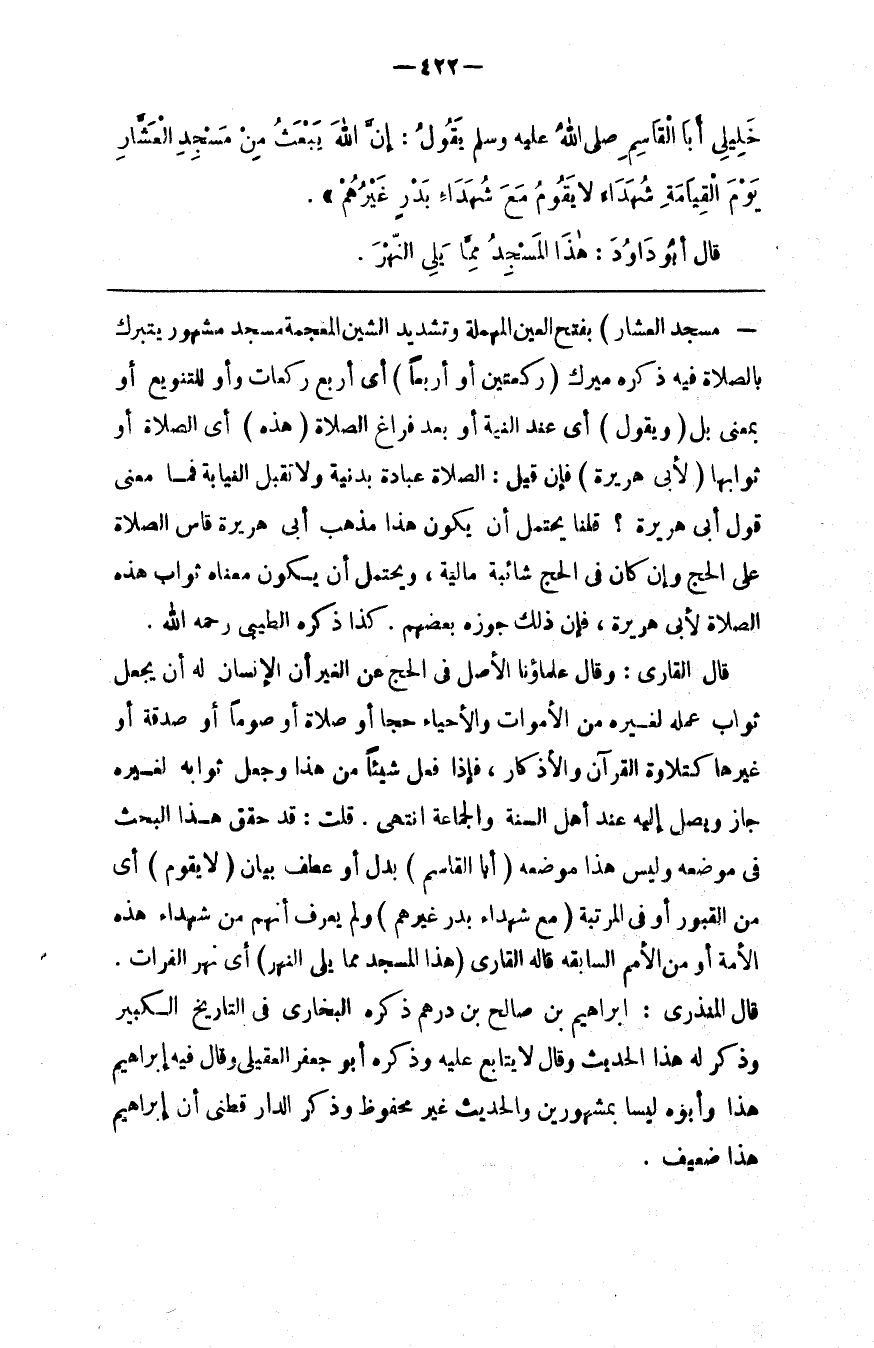 —٤٢٢—
خَلِيلِي أَبَا الْقَاسِمِ صلى اللهُ عليه وسلم يَقُولُ : إِنَّ اللهَ يَبْعَثُ مِنْ مَسْجِدِ الْعَشَّارِ
يَوْمَ الْقِيَامَةِ شُهَدَاءَ لا يَقُومُ مَعَ شُهَدَاءِ بَدْرٍ غَيْرُهُمْ » .
قال أَبُو دَاوُدَ : هٰذَا المَسْجِدُ مِمَّا يَلِي النَّهْرَ .
— مسجد العشار ) بفتح العين المهملة وتشديد الشين المعجمة مسجد مشهور يتبرك
بالصلاة فيه ذكره ميرك ( ركعتين أو أربعاً ) أى أربع ركعات وأو للتنويع أو
بمعنى بل ( ويقول ) أى عند النية أو بعد فراغ الصلاة ( هذه ) أى الصلاة أو
ثوابها ( لأبى هريرة ) فإن قيل : الصلاة عبادة بدنية ولا تقبل النيابة فمـا معنى
قول أبى هريرة ؟ قلنا يحتمل أن يكون هذا مذهب أبى هريرة قاس الصلاة
على الحج وإن كان فى الحج شائبة مالية ، ويحتمل أن يـكون معناه ثواب هذه
الصلاة لأبى هريرة ، فإن ذلك جوزه بعضهم . كذا ذكره الطيبى رحمه الله .
قال القارى : وقال علماؤنا الأصل فى الحج عن الغير أن الإنسان له أن يجعل
ثواب عمله لغـيره من الأموات والأحياء حجا أو صلاة أو صوماً أو صدقة أو
غيرها كتلاوة القرآن والأذكار ، فإذا فعل شيئاً من هذا وجعل ثوابه لغـيره
جاز ويصل إليه عند أهل السنة والجماعة انتهى . قلت : قد حقق هـذا البحث
فى موضعه وليس هذا موضعه ( أبا القاسم ) بدل أو عطف بيان ( لا يقوم ) أى
من القبور أو فى المرتبة ( مع شهداء بدر غيرهم ) ولم يعرف أنهم من شهداء هذه
الأمة أو من الأمم السابقه قاله القارى ( هذا المسجد مما يلى النهر ) أى نهر الفرات .
قال المنذرى : ابراهيم بن صالح بن درهم ذكره البخارى فى التاريخ الـكبير
وذكر له هذا الحديث وقال لا يتابع عليه وذكره أبو جعفر العقيلى وقال فيه إبراهيم
هذا وأبوه ليسا بمشهورين والحديث غير محفوظ وذكر الدار قطنى أن إبراهيم
هذا ضعيف .